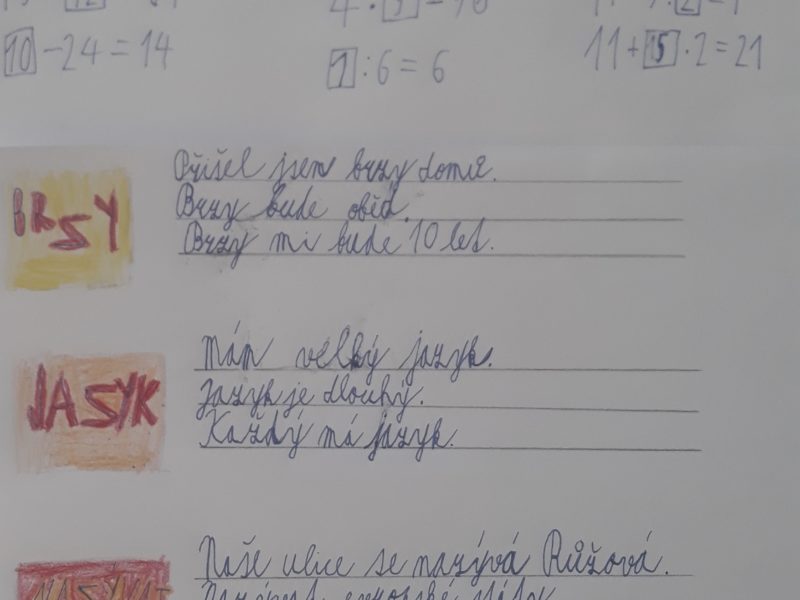 10 - 24 = 14
1 : 6 = 6
11 + 15 · 2 = 21
BRSY
Přišel jsem brzy domů.
Brzy bude oběd.
Brzy mi bude 10 let.
JASYK
Mám velký jazyk.
Jazyk je dlouhý.
Každý má jazyk.
NASÝVAT
Naše ulice se nazývá Růžová.